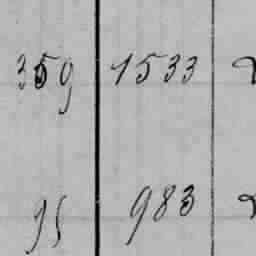 359 1533
95 983